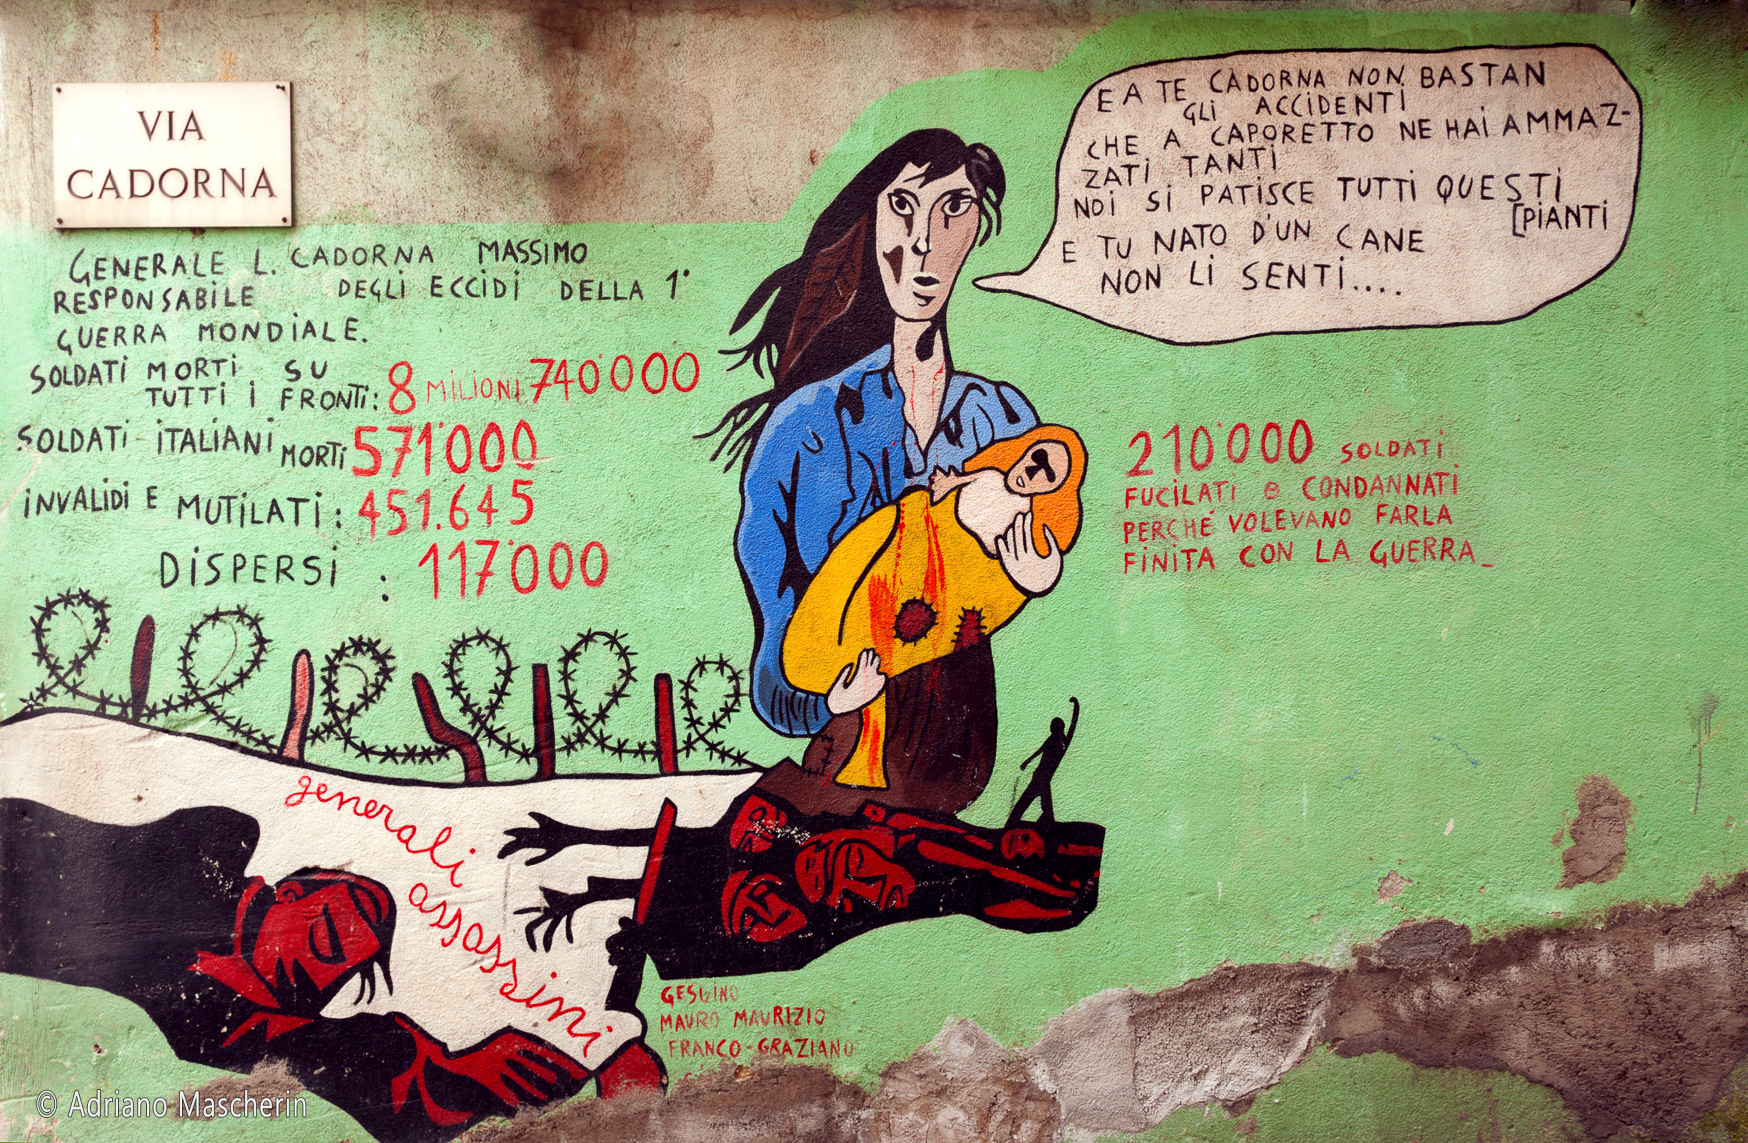 VIA
CADORNA
GENERALE L. CADORNA MASSIMO
RESPONSABILE DEGLI ECCIDI DELLA 1°
GUERRA MONDIALE.
SOLDATI MORTI SU
TUTTI I FRONTI: 8 MILIONI 740'000
SOLDATI ITALIANI MORTI 571'000
INVALIDI E MUTILATI: 451.645
DISPERSI : 117'000
E A TE CADORNA NON BASTAN
GLI ACCIDENTI
CHE A CAPORETTO NE HAI AMMAZ-
ZATI TANTI
NOI SI PATISCE TUTTI QUESTI
[PIANTI
E TU NATO D'UN CANE
NON LI SENTI....
210'000 SOLDATI
FUCILATI e CONDANNATI
PERCHÉ VOLEVANO FARLA
FINITA CON LA GUERRA_
generali
assassini
GESUINO
MAURO MAURIZIO
FRANCO-GRAZIANO
© Adriano Mascherin